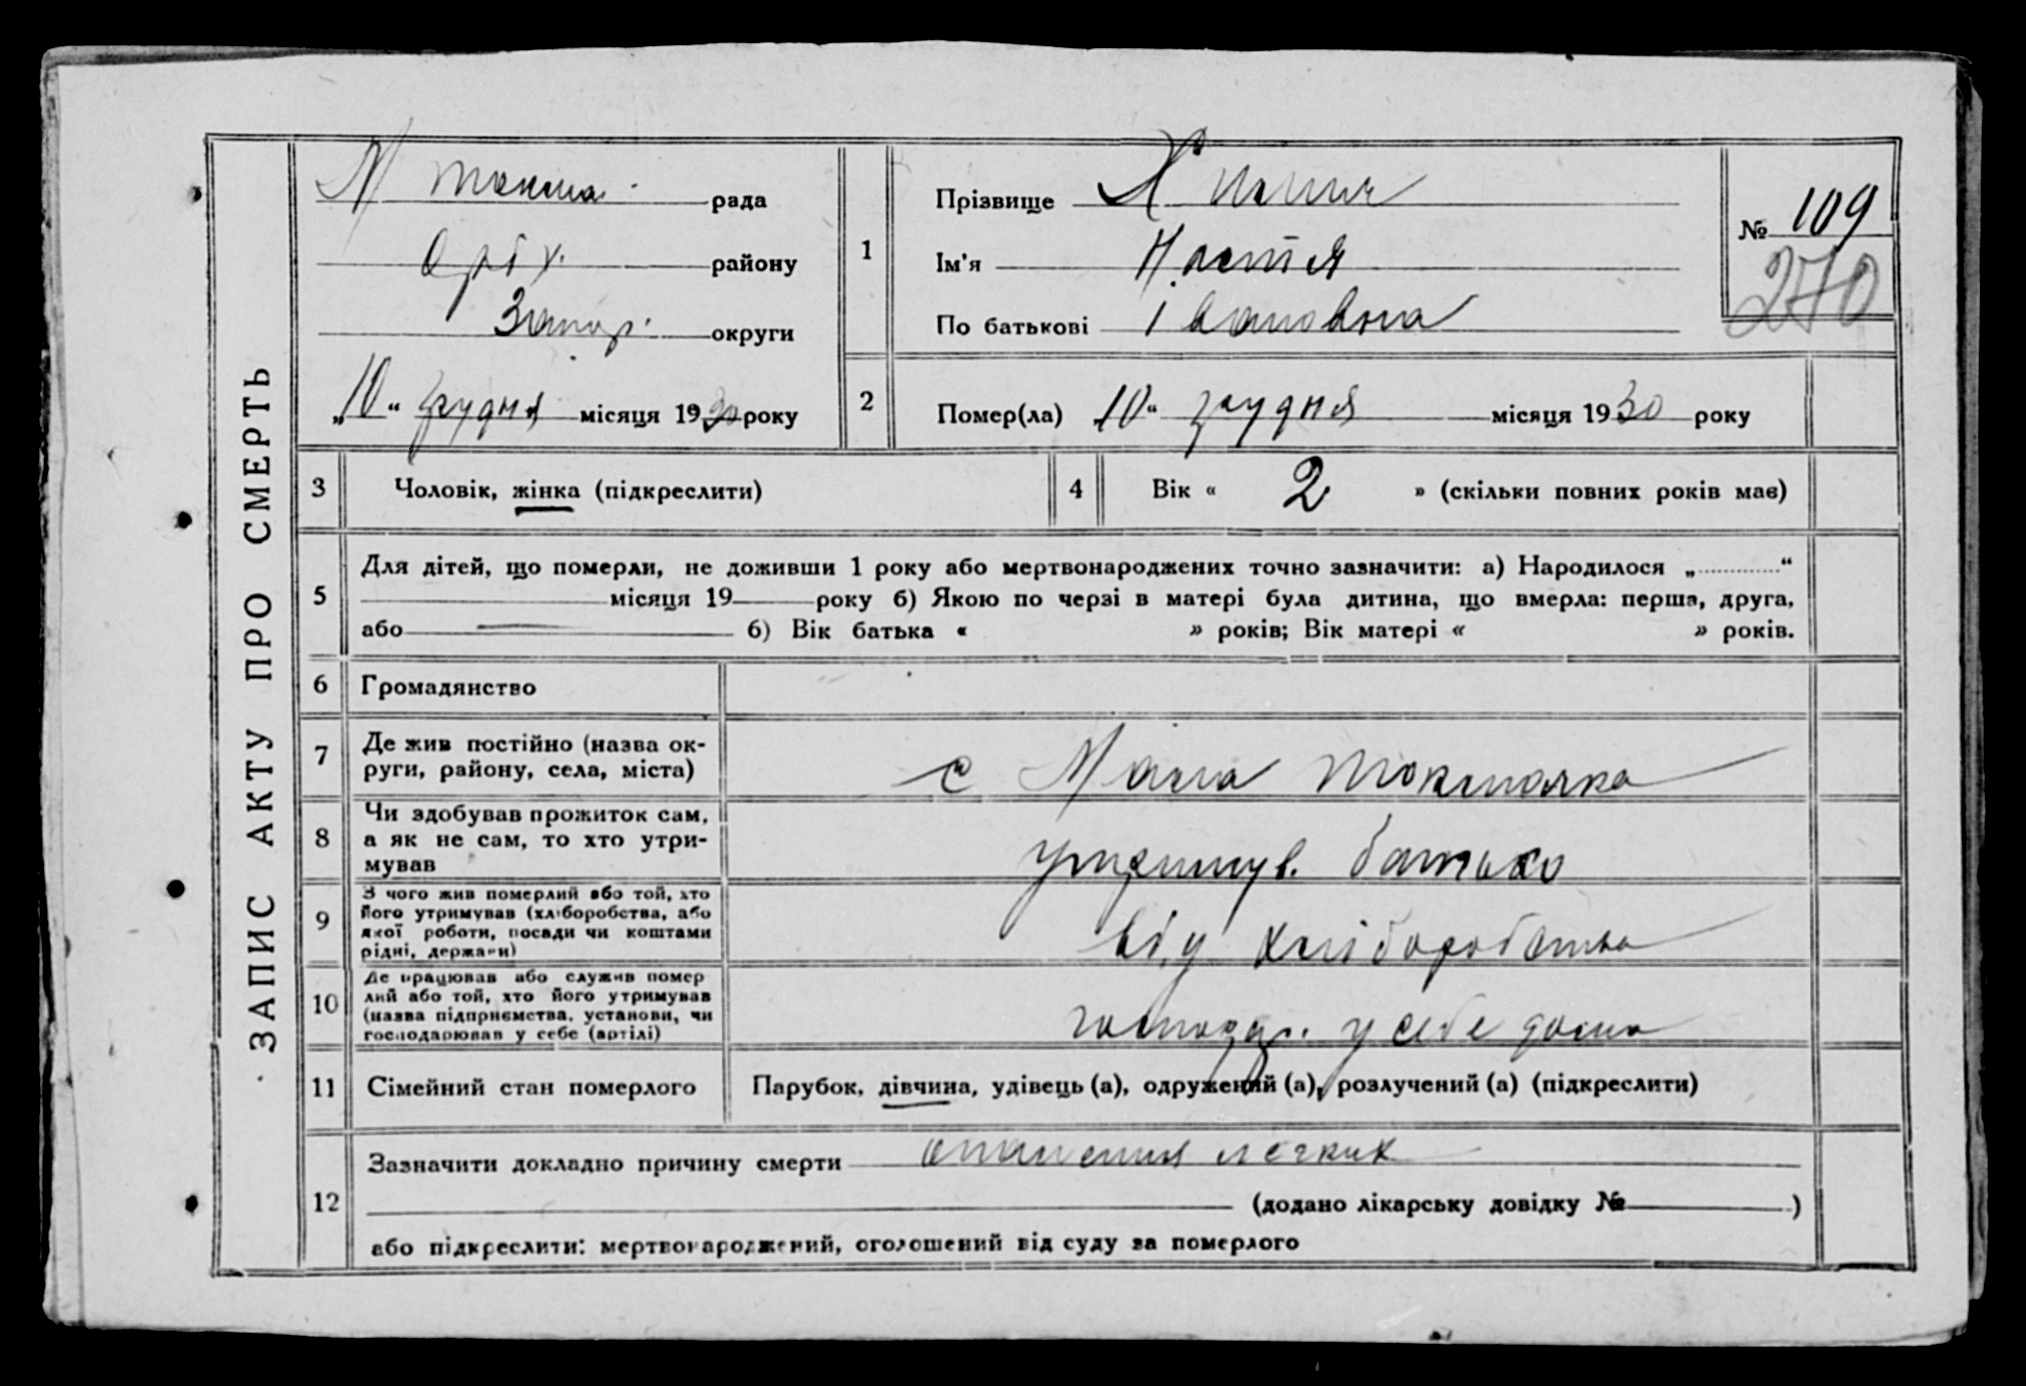 ЗАПИС АКТУ ПРО СМЕРТЬ
М рада
Оріх. району
Запор. округи
„10“ грудня місяця 1930 року
1
Прізвище
Ім'я Настя
По батькові Івановна
№ 109
270
2
Помер(ла) „10“ грудня місяця 1930 року
3
Чоловік, жінка (підкреслити)
4
Вік « 2 » (скільки повних років має)
5
Для дітей, що померли, не доживши 1 року або мертвонароджених точно зазначити: а) Народилося „ “
місяця 19 року б) Якою по черзі в матері була дитина, що вмерла: перша, друга,
або б) Вік батька « » років; Вік матері « » років.
6
Громадянство
7
Де жив постійно (назва ок-
руги, району, села, міста)
с Мала Токмачка
8
Чи здобував прожиток сам,
а як не сам, то хто утри-
мував
утримув. батько
9
З чого жив померлий або той, хто
його утримував (хліборобства, або
якої роботи, посади чи коштами
рідні, держави)
від хліборобства
10
Де працював або служив помер
лий або той, хто його утримував
(назва підприємства, установи, чи
господарював у себе (артілі)
господар. у себе дома
11
Сімейний стан померлого
Парубок, дівчина, удівець (а), одружений (а), розлучений (а) (підкреслити)
12
Зазначити докладно причину смерти легких
(додано лікарську довідку № )
або підкреслити: мертвонароджений, оголошений від суду за померлого